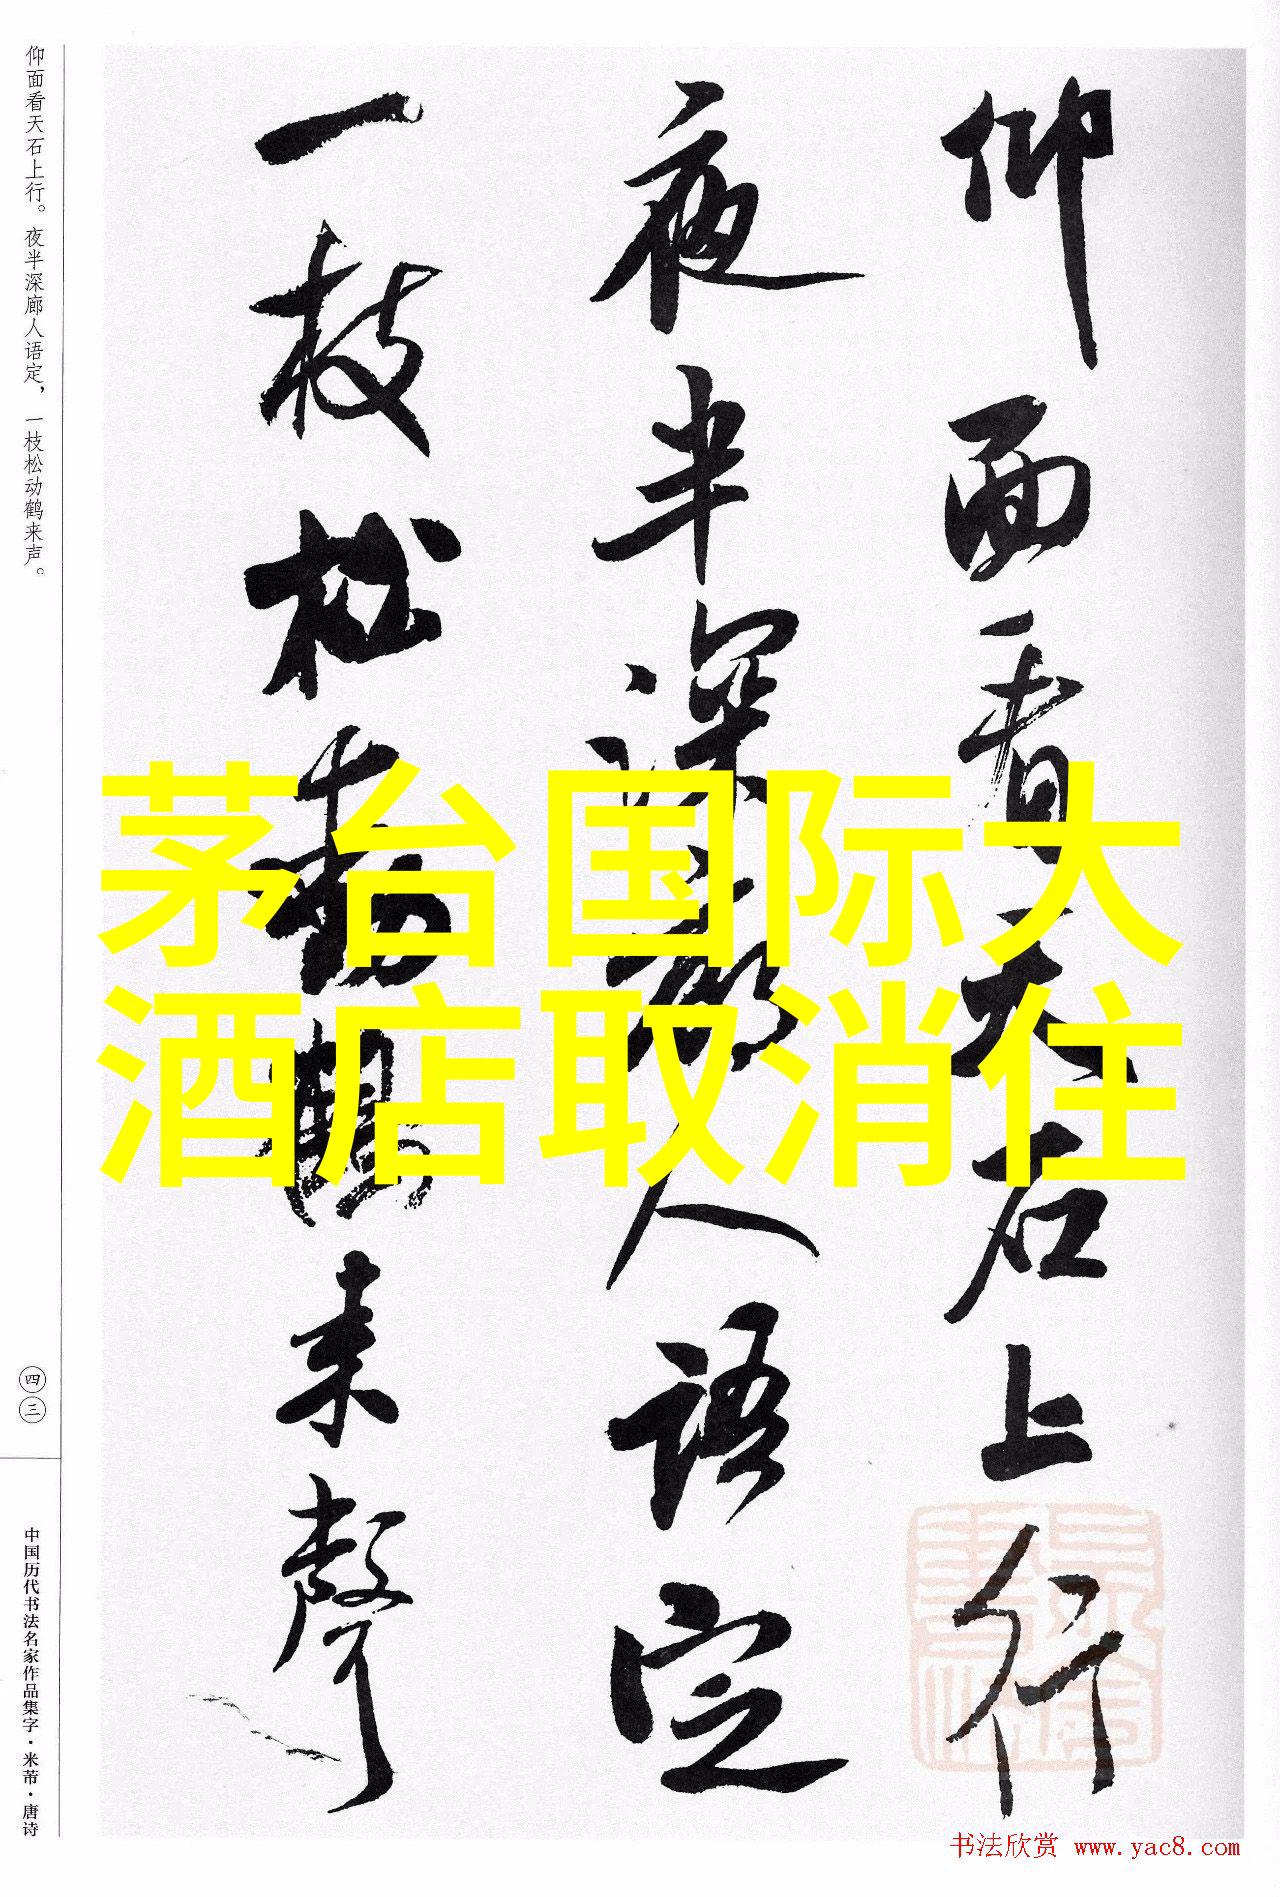 仰面看天石上行
夜半深廊人语定
一枝松動鶴来聲
仰面看天石上行。夜半深廊人语定，一枝松动鹤来声。
四三
中国历代书法名家作品集字·米芾·唐诗
茅台国际大
酒店取消住
书法欣赏 www.yac8.com